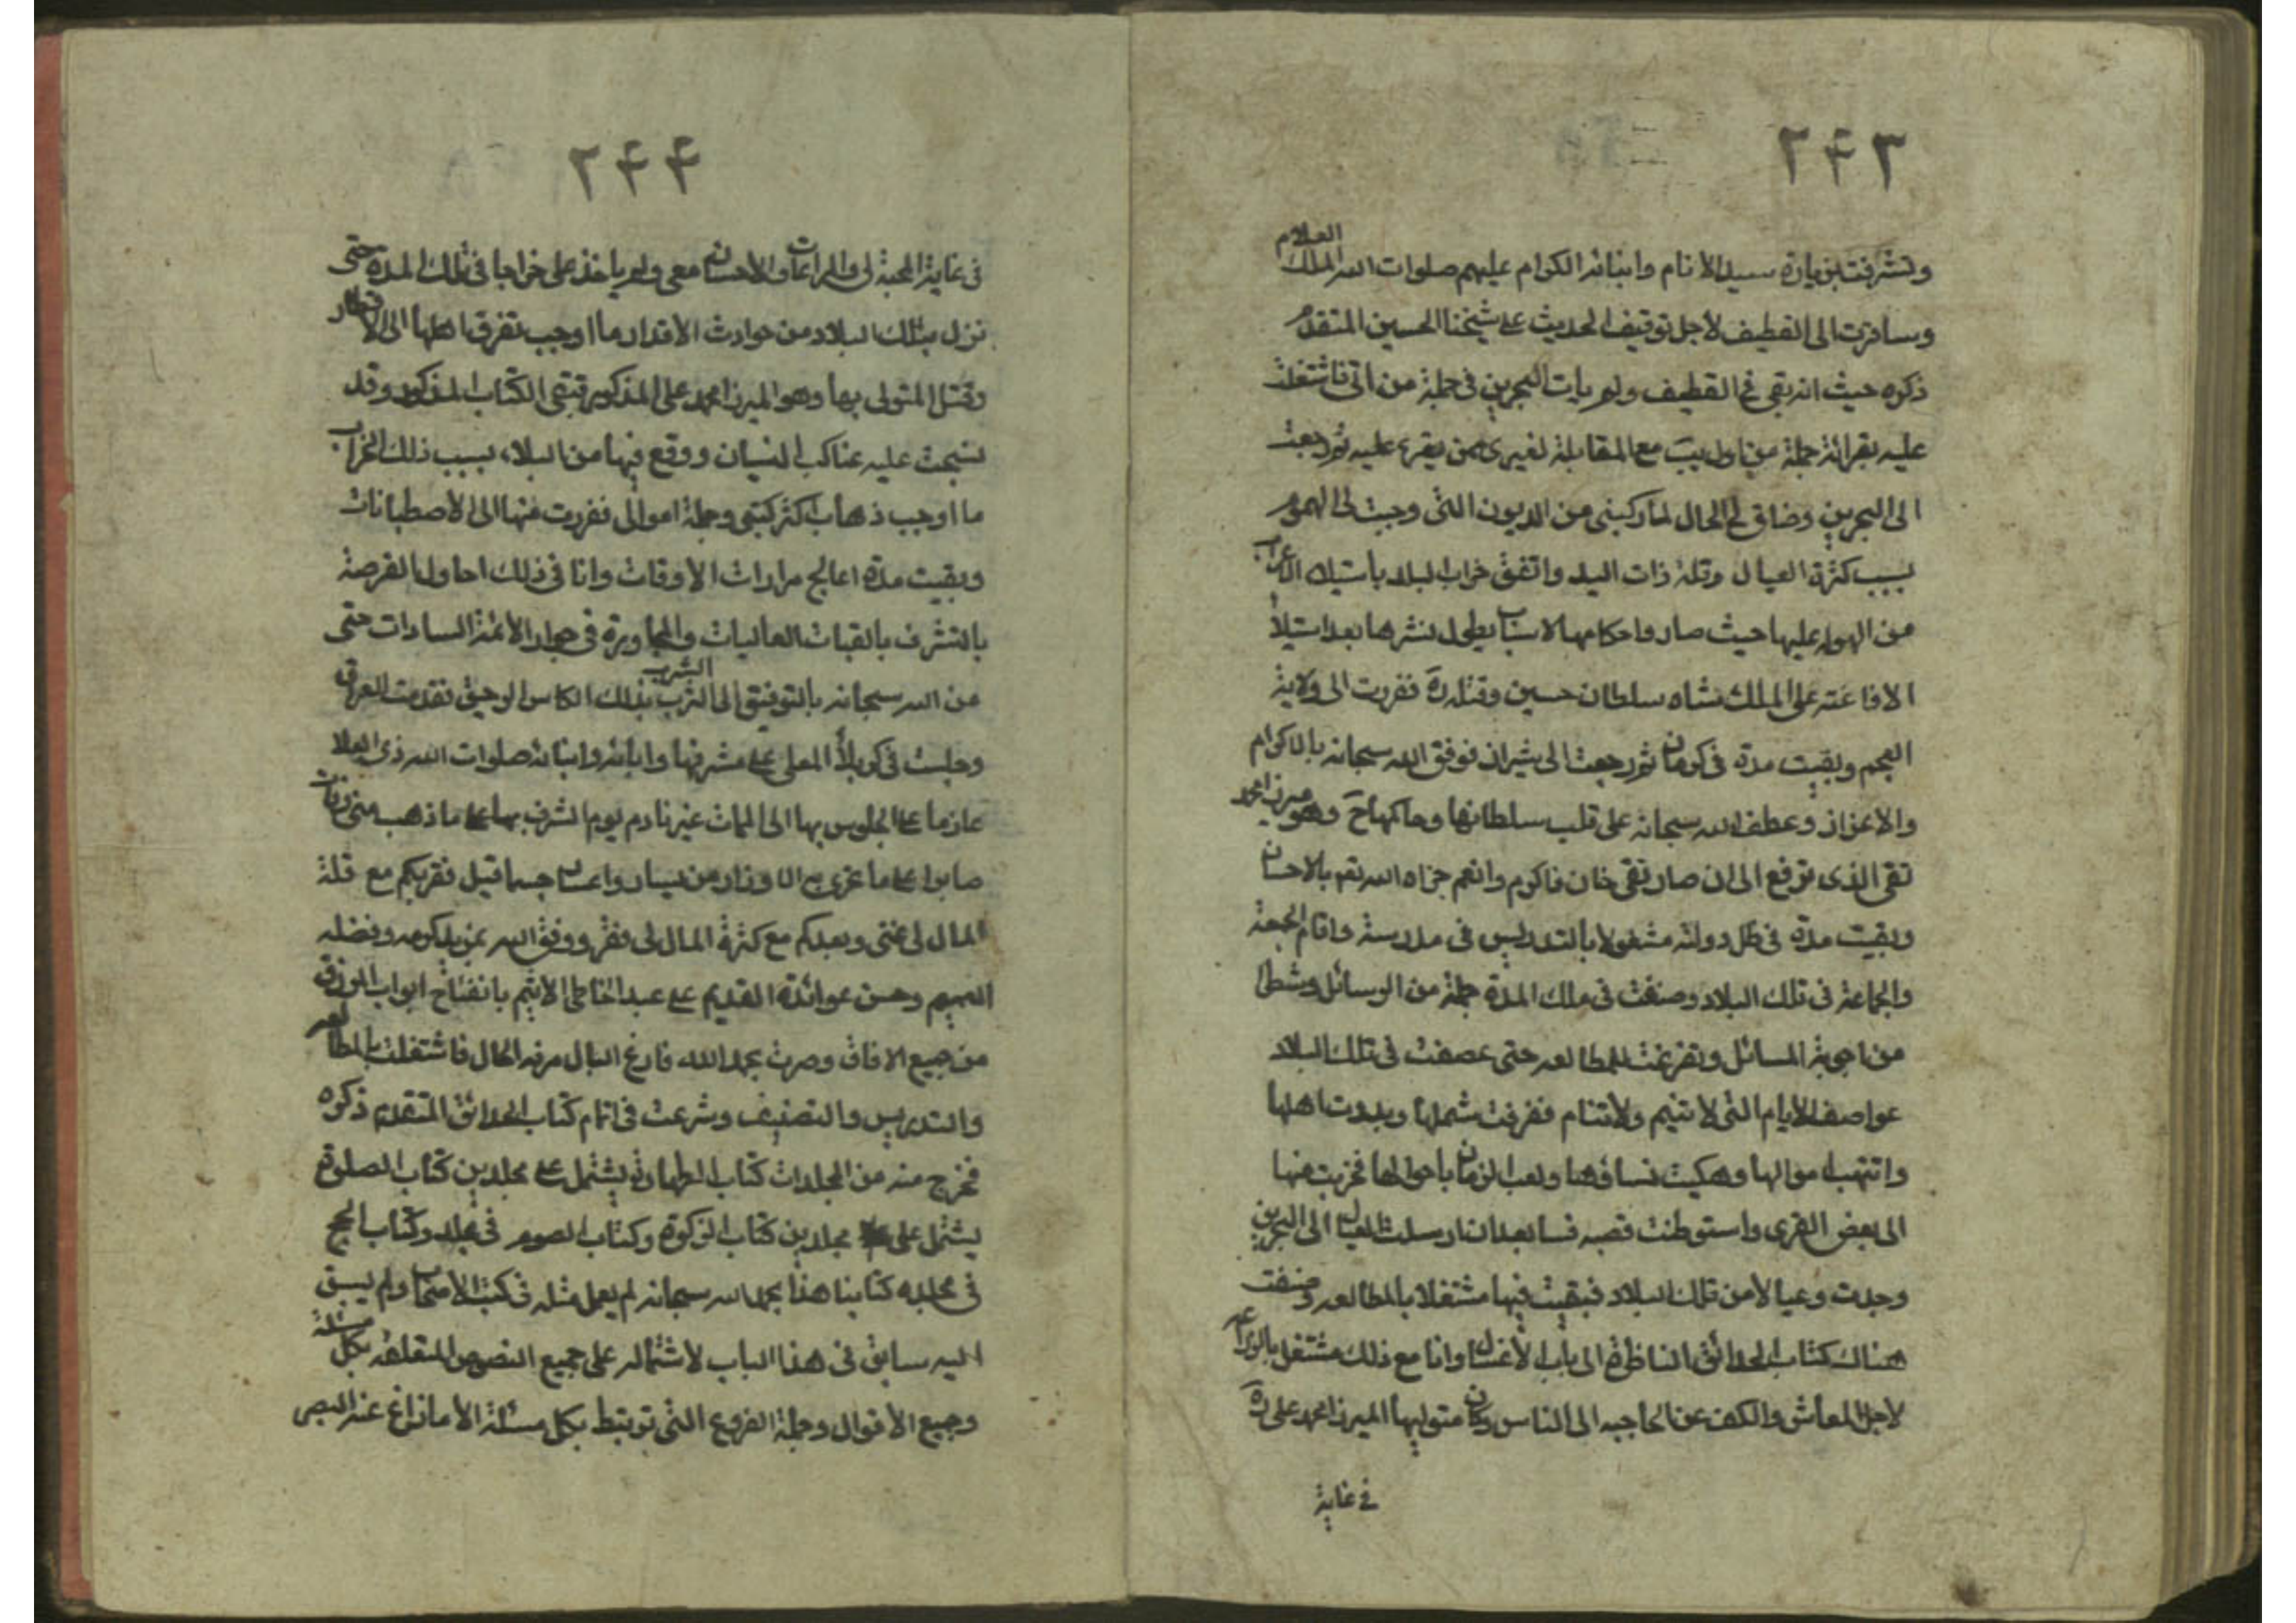 ٢۴٣
وتشرفت بزيارة سيد الانام وابنائه الكرام عليهم صلوات الله الملك العلام
وسافرت الى القطيف لاجل توقيف الحديث على شيخنا الحسين المتقدم
ذكره حيث انه بقى في القطيف ولم يأت البحرين في جملة من اتى فاشتغلت
عليه بقرائة جملة من اول يب مع المقابلة لغيرى ممن يقرء عليه ثم رجعت
الى البحرين وضاق لى الحال لما ركبنى من الديون التى وجبت لى الهموم
بسبب كثرة العيال وقلة ذات اليد واتفق خراب البلد باستيلاء الاعراب
من الهوله عليها حيث صاروا حكامها لاسباب يطول نشرها بعد استيلاء
الافاغنه على الملك شاه سلطان حسين وقتله ره ففررت الى ولاية
العجم وبقيت مدة في كرمان ثم رجعت الى شيراز فوفق الله سبحانه بالاكرام
والاعزاز وعطف الله سبحانه على قلب سلطانها وحاكمها ح وهو ميرزا محمد
تقى الذى ترفع الى ان صار تقى خان فاكرم وانعم جزاه الله تعم بالاحسان
وبقيت مدة في ظل دولته مشغولا بالتدريس فى مدرسة واقام الجمعة
والجماعة فى تلك البلاد وصنفت فى تلك المدة جملة من الرسائل وشطرا
من اجوبة المسائل وتفرغت للمطالعه حتى عصفت فى تلك البلاد
عواصف الايام التى لا تنيم ولا تنام ففرقت شملها وبددت اهلها
وانتهب اموالها وهتكت نساؤها ولعب الزمان باحوالها فخرجت منها
الى بعض القرى واستوطنت قصبه فسا بعد ان ارسلت العيال الى البحرين
وجددت وعيالا من تلك البلاد فبقيت فيها مشتغلا بالمطالعه وصنفت
هناك كتاب الحدائق الناظرة الى باب الاغسال وانا مع ذلك مشتغل بالزراعه
لاجل المعاش والكف عن الحاجبه الى الناس وكان متوليها الميرزا محمد على ره
في غاية
٢۴۴
فى غاية المحبة لى والمراعات والاحسان معى ولم ياخذ على خراجا فى تلك المدة حتى
نزل بتلك البلاد من حوادث الاقدار ما اوجب تفرق اهلها الى الاقطار
وقتل المتولى بها وهو الميرزا محمد على المذكور فبقى الكتاب المذكور وقد
نسجت عليه عناكب النسيان ووقع فيها من البلاء بسبب ذلك الخراب
ما اوجب ذهاب اكثر كتبى وجملة اموالى ففررت منها الى الاصطبانات
وبقيت مدة اعالج مرارات الاوقات وانا فى ذلك احاول الفرصة
بالتشرف بالقبات العاليات والمجاورة فى جوار الائمة السادات حتى
من الله سبحانه بالتوفيق الى الترب الشرب بذلك الكاس الرحيق فقدمت العراق
وجلست فى كربلا المعلى على مشرفها وابائه وابنائه صلوات الله ذى العلا
عازما على الجلوس بها الى الممات غير نادم يوم الشرف بها على ما ذهب منى وفات
صابرا على ما تجرى به الاوزار من يسار واعسار حسبما قيل فقربكم مع قلة
المال لى غنى وبعدكم مع كثرة المال لى فقر ووفق الله بمزيد كرمه وفضله
العميم وحسن عوائده القديم على عبده الخاطى الاثيم بانفتاح ابواب الرزق
من جميع الافاق وصرت بحمد الله فارغ البال مرفه الحال فاشتغلت بالمطالعه
والتدريس والتصنيف وشرعت فى اتمام كتاب الحدائق المتقدم ذكره
فخرج منه من المجلدات كتاب الطهارة يشتمل على مجلدين كتاب الصلوة
يشتمل على مجلدين كتاب الزكوة وكتاب الصوم فى مجلد وكتاب الحج
فى مجلده كتابنا هذا بحمد الله سبحانه لم يعمل مثله فى كتب الاصحاب ولم يسبق
اليه سابق فى هذا الباب لاشتماله على جميع النصوص المتعلقه بكل مسئلة
وجميع الاقوال وجملة الفروع التى ترتبط بكل مسئلة الا ما زاغ عنه البصر